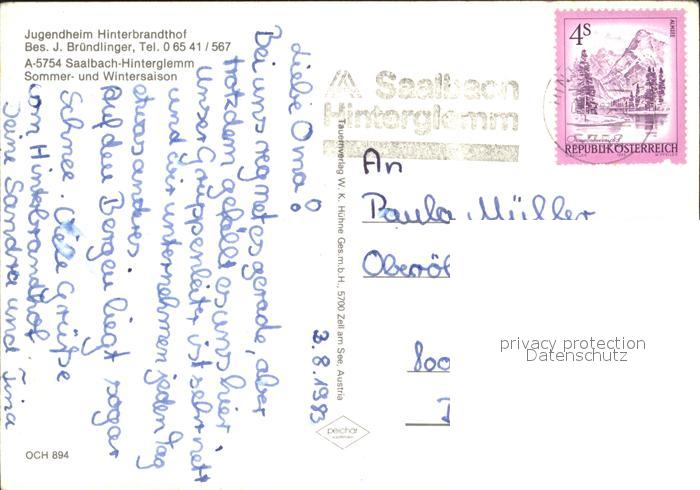 Jugendheim Hinterbrandthof
Bes. J. Bründlinger, Tel. 0 65 41 / 567
A-5754 Saalbach-Hinterglemm
Sommer- und Wintersaison
Liebe Oma!
Bei uns regnet es gerade, aber
trotzdem gefällt es uns hier.
Unser Gruppenleiter ist sehr nett
und wir unternehmen jeden Tag
etwas anderes.
Auf den Bergen liegt sogar
Schnee. Viele Grüße
vom Hinterbrandthof
Deine Sandra und Tina
3.8.1983
OCH 894
Tauernverlag W. K. Hühne Ges.m.b.H., 5700 Zell am See, Austria
peichar
Saalbach
Hinterglemm
4S
ALMSEE
REPUBLIK ÖSTERREICH
An
Paula Müller
Oberöt
800
privacy protection
Datenschutz